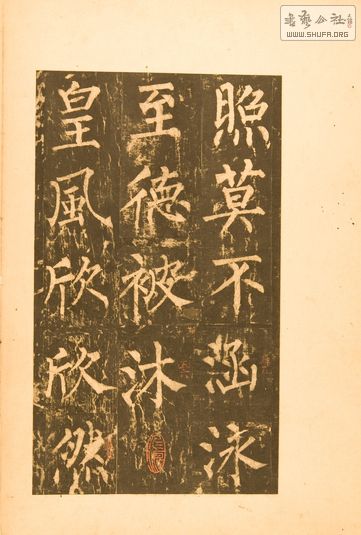 照莫不涵泳
至德被沐
皇風欣欣然
書藝公社
WWW.SHUFA.ORG